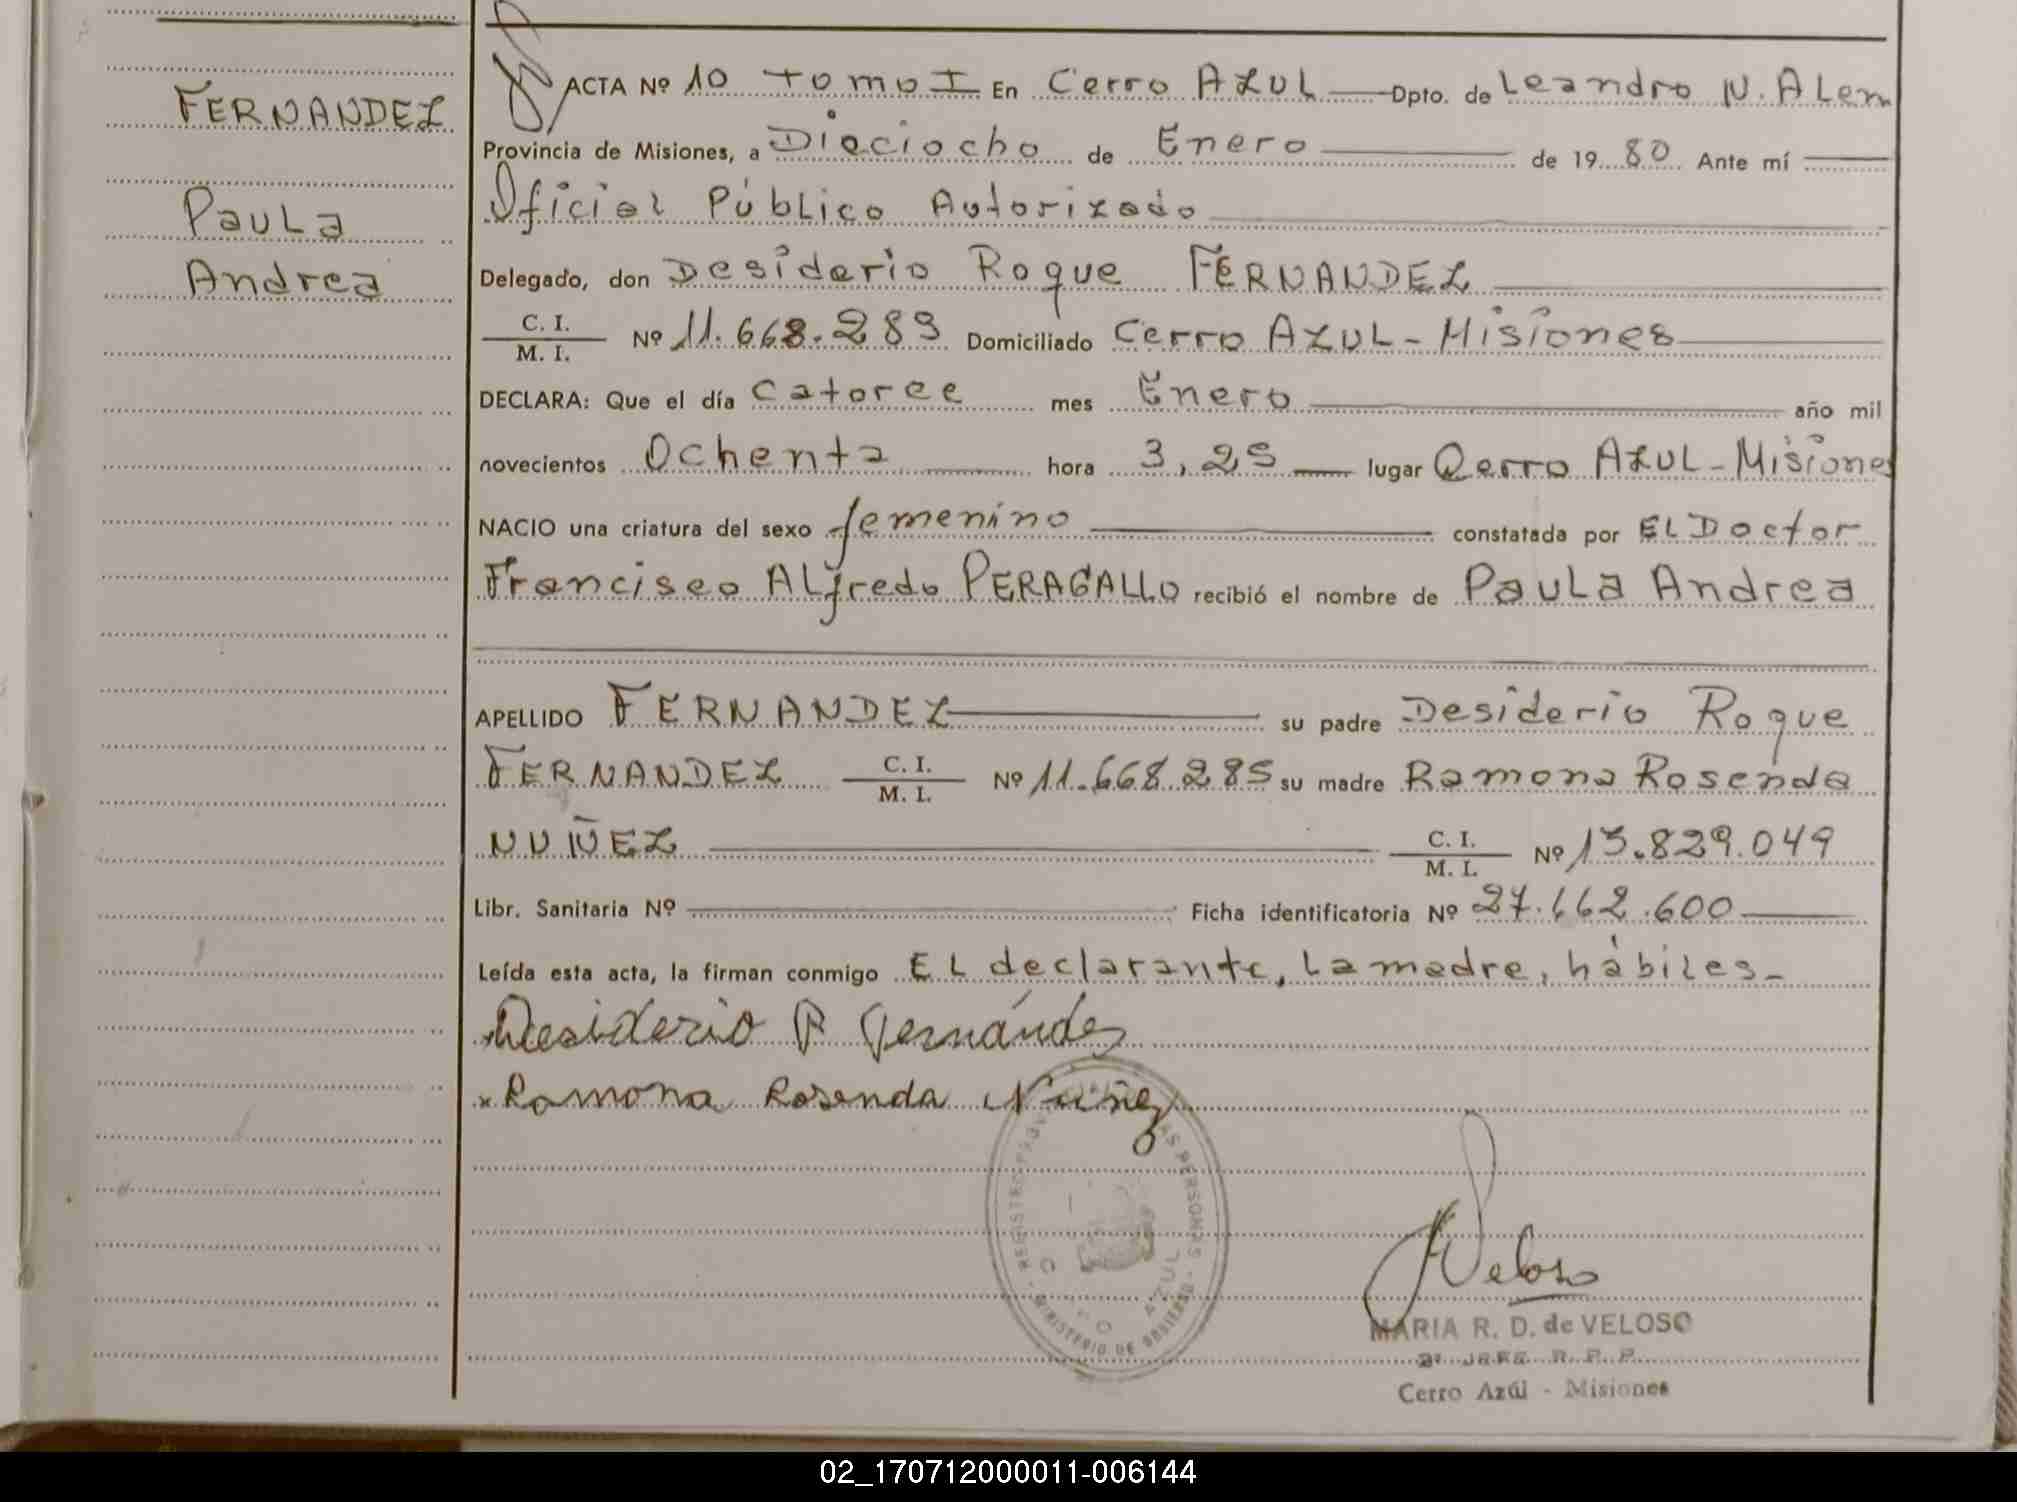 FERNANDEZ
Paula
Andrea
ACTA Nº 10 tomo I En Cerro AZUL Dpto. de Leandro N. ALem
Provincia de Misiones, a Dieciocho de Enero de 1980 Ante mí
Oficial Público Autorizado
Delegado, don Desiderio Roque FERNANDEZ
C. I.
M. I. Nº 11.668.289 Domiciliado Cerro AZUL - Misiones
DECLARA: Que el día catorce mes Enero año mil
novecientos Ochenta hora 3,25 lugar Cerro AZUL - Misiones
NACIO una criatura del sexo femenino constatada por EL Doctor
Francisco ALfredo PERAGALLO recibió el nombre de PauLa Andrea
APELLIDO FERNANDEZ su padre Desiderio Roque
FERNANDEZ C. I.
M. I. Nº 11.668.285 su madre Ramona Rosenda
NUÑEZ C. I.
M. I. Nº 13.829.049
Libr. Sanitaria Nº Ficha identificatoria Nº 27.662.600
Leída esta acta, la firman conmigo EL declarante, La madre, hábiles-
Desiderio R Fernández
x Ramona Rosenda Núñez
REGISTRO AS PERSONAS - MINISTERIO DE GOBIERNO
AZUL
Veloso
MARIA R. D. de VELOSO
2º JEFE R. P. P.
Cerro Azúl - Misiones
02_170712000011-006144